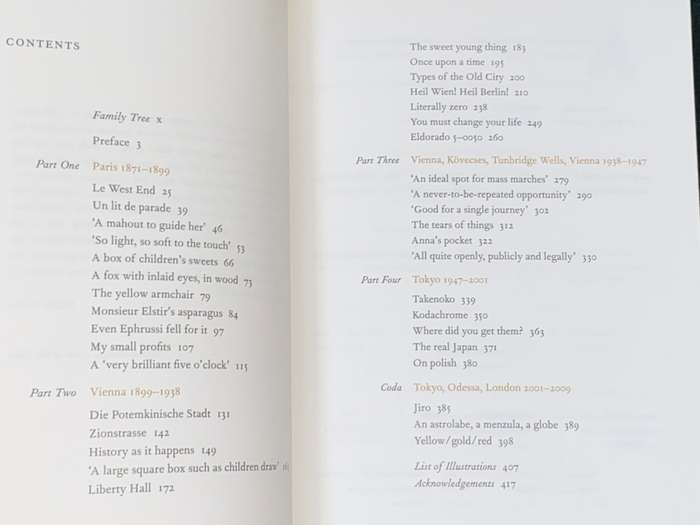 CONTENTS
Family Tree x
Preface 3
Part One Paris 1871–1899
Le West End 25
Un lit de parade 39
'A mahout to guide her' 46
'So light, so soft to the touch' 53
A box of children's sweets 66
A fox with inlaid eyes, in wood 73
The yellow armchair 79
Monsieur Elstir's asparagus 84
Even Ephrussi fell for it 97
My small profits 107
A 'very brilliant five o'clock' 115
Part Two Vienna 1899–1938
Die Potemkinische Stadt 131
Zionstrasse 142
History as it happens 149
'A large square box such as children draw'
Liberty Hall 172
The sweet young thing 183
Once upon a time 195
Types of the Old City 200
Heil Wien! Heil Berlin! 210
Literally zero 238
You must change your life 249
Eldorado 5-0050 260
Part Three Vienna, Kövecses, Tunbridge Wells, Vienna 1938–1947
'An ideal spot for mass marches' 279
'A never-to-be-repeated opportunity' 290
'Good for a single journey' 302
The tears of things 312
Anna's pocket 322
'All quite openly, publicly and legally' 330
Part Four Tokyo 1947–2001
Takenoko 339
Kodachrome 350
Where did you get them? 363
The real Japan 371
On polish 380
Coda Tokyo, Odessa, London 2001–2009
Jiro 385
An astrolabe, a menzula, a globe 389
Yellow/gold/red 398
List of Illustrations 407
Acknowledgements 417